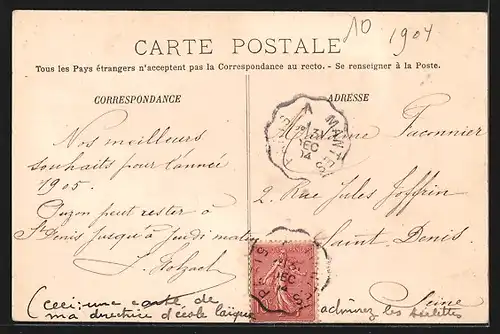 10 1904
CARTE POSTALE
Tous les Pays étrangers n'acceptent pas la Correspondance au recto. - Se renseigner à la Poste.
CORRESPONDANCE
ADRESSE
Nos meilleurs
souhaits pour l'année
1905.
Ouzon peut rester à
St Denis jusqu'à Jeudi matin
J. Holzach
Madame Faconnier
2, Rue Jules Joffrin
Saint Denis
Seine
A MANTES
31
DEC
04
(ceci: une carte de
ma directrice d'école laïque
admirez les